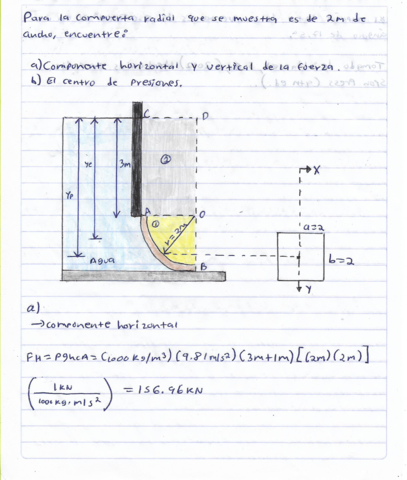 Para la compuerta radial que se muestra es de 2m de
ancho, encuentre:
a) Componente horizontal y vertical de la fuerza.
b) El centro de presiones.
C
D
yp
yc
3m
②
→X
A
O
①
r=2m
a=2
b=2
Agua
B
Y
a)
→componente horizontal
FH=PghcA=(1000Kg/m³)(9.81m/s²)(3m+1m)[(2m)(2m)]
(1KN/1000Kg·m/s²) = 156.96KN